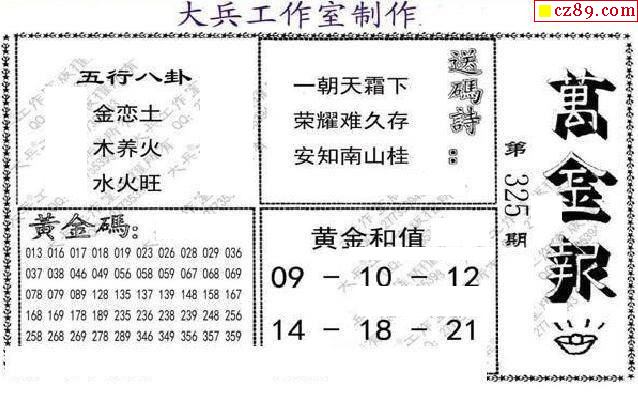 大兵工作室制作
cz89.com
五行八卦
金恋土
木养火
水火旺
送碼詩：
一朝天霜下
荣耀难久存
安知南山桂
萬金報
第325期
黃金碼：
013 016 017 018 019 023 026 028 029 036
037 038 046 049 056 058 059 067 068 069
078 079 089 128 135 137 139 148 158 167
168 169 178 189 235 236 238 239 248 256
258 268 269 278 289 346 349 356 357 359
黄金和值
09 － 10 － 12
14 － 18 － 21